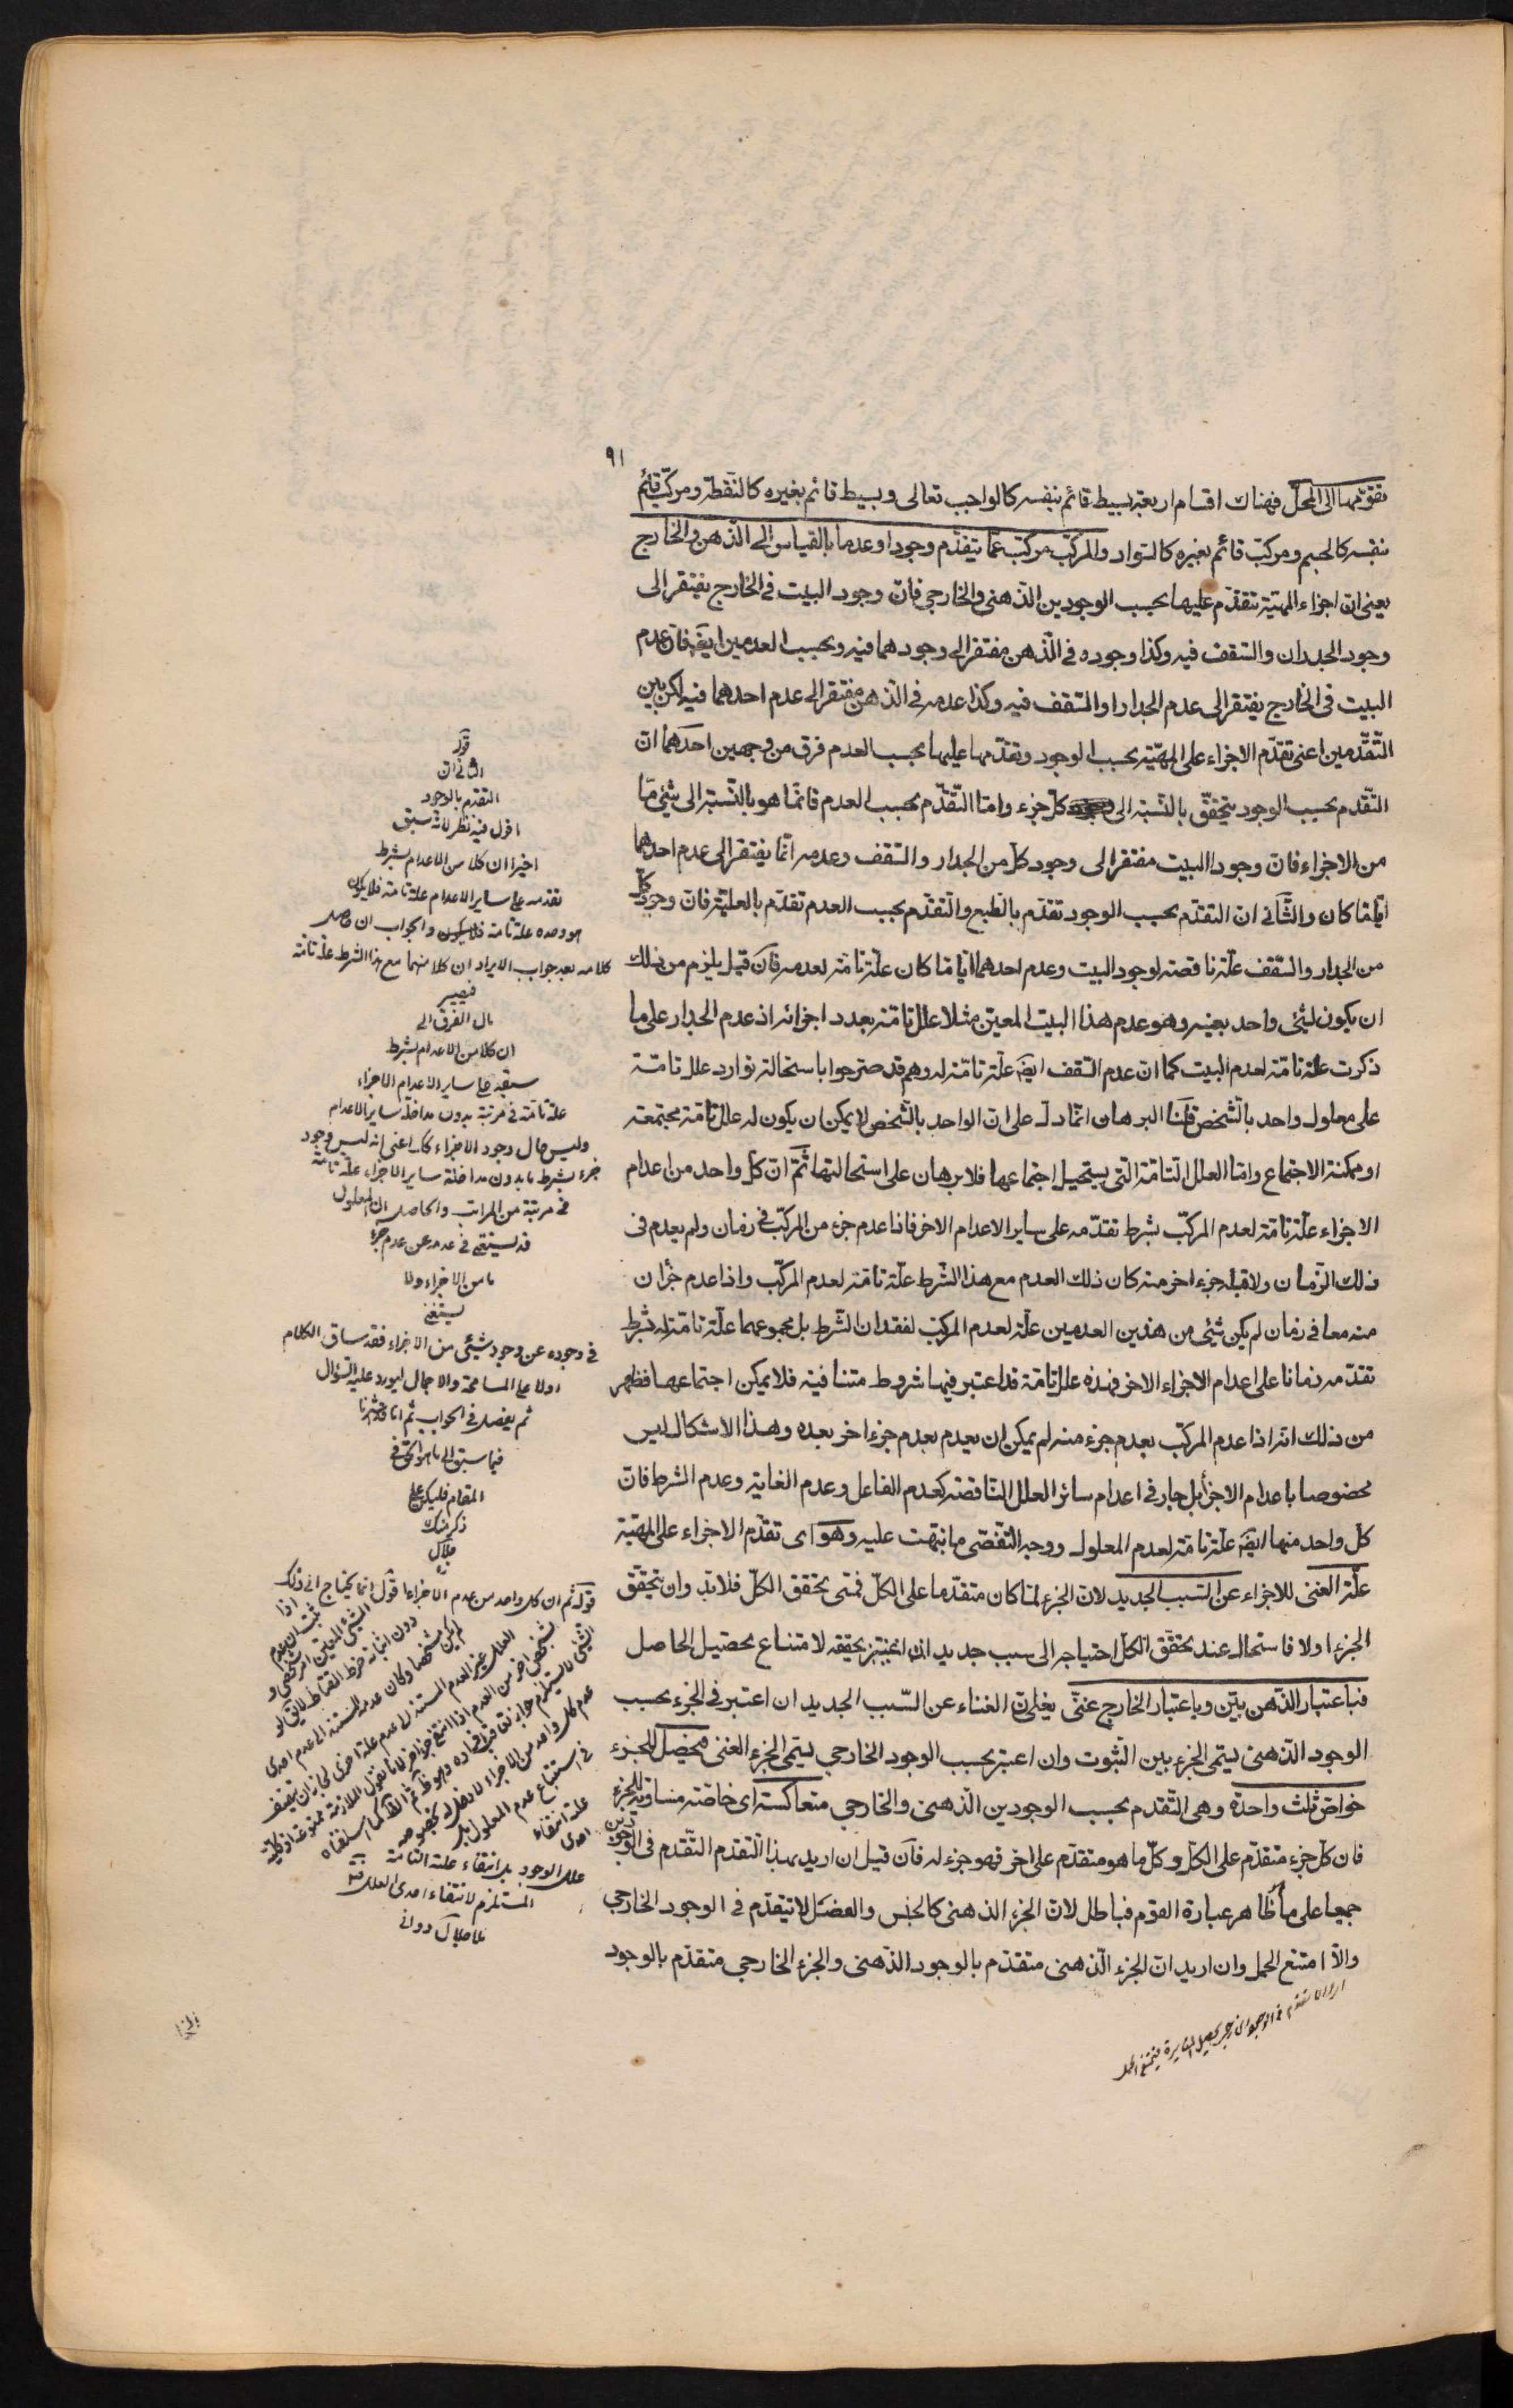 ٩١
تقومها الى المحل فهناك اقسام اربعة بسيط قائم بنفسه كالواجب تعالى وبسيط قائم بغيره كالنقطة ومركب قائم
بنفسه كالجسم ومركب قائم بغيره كالسواد والمركب مركب عما يتقدم وجودا وعدما بالقياس الى الذهن والخارج
يعنى ان اجزاء المهية تتقدم عليها بحسب الوجودين الذهنى والخارجي فان وجود البيت فى الخارج يفتقر الى
وجود الجدران والسقف فيه وكذا وجوده فى الذهن مفتقر الى وجودهما فيه وبحسب العدمين ايضا فان عدم
البيت فى الخارج يفتقر الى عدم الجدار او السقف فيه وكذا عدمه فى الذهن مفتقر الى عدم احدهما فيه لكن بين
التقدمين اعنى تقدم الاجزاء على المهية بحسب الوجود وتقدمها عليها بحسب العدم فرق من وجهين احدهما ان
التقدم بحسب الوجود يتحقق بالنسبة الى كل جزء واما التقدم بحسب العدم فانما هو بالنسبة الى شئ ما
من الاجزاء فان وجود البيت مفتقر الى وجود كل من الجدار والسقف وعدمه انما يفتقر الى عدم احدهما
ايا ما كان والثانى ان التقدم بحسب الوجود تقدم بالطبع والتقدم بحسب العدم تقدم بالعلية فان وجود كل
من الجدار والسقف علة ناقصة لوجود البيت وعدم احدهما ايا ما كان علة تامة لعدمه فان قيل يلزم من ذلك
ان يكون لشئ واحد بعينه وهو عدم هذا البيت المعين مثلا علل تامة بعدد اجزائه اذ عدم الجدار على ما
ذكرت علة تامة لعدم البيت كما ان عدم السقف ايضا علة تامة له وهم قد صرحوا باستحالة توارد علل تامة
على معلول واحد بالشخص قلنا البرهان انما دل على ان الواحد بالشخص لا يمكن ان يكون له علل تامة مجتمعة
او ممكنة الاجتماع واما العلل التامة التى يستحيل اجتماعها فلا برهان على استحالتها ثم ان كل واحد من اعدام
الاجزاء علة تامة لعدم المركب بشرط تقدمه على سائر الاعدام الاخر فاذا عدم جزء من المركب فى زمان ولم يعدم فى
ذلك الزمان ولا قبله جزء اخر منه كان ذلك العدم مع هذا الشرط علة تامة لعدم المركب واذا عدم جزان
منه معا فى زمان لم يكن شئ من هذين العدمين علة لعدم المركب لفقدان الشرط بل مجموعهما علة تامة له بشرط
تقدمه زمانا على اعدام الاجزاء الاخر فهذه علل تامة قد اعتبر فيها شروط متنافية فلا يمكن اجتماعها فظهر
من ذلك انه اذا عدم المركب بعدم جزء منه لم يمكن ان يعدم بعدم جزء اخر بعده وهذا الاشكال ليس
مخصوصا باعدام الاجزأ بل جار فى اعدام سائر العلل الناقصة كعدم الفاعل وعدم الغاية وعدم الشرط فان
كل واحد منها ايضا علة تامة لعدم المعلول ووجه التفصى ما نبهت عليه وهو اى تقدم الاجزاء على المهية
علة الغنى للاجزاء عن السبب الجديد لان الجزء لما كان متقدما على الكل فمتى تحقق الكل فلا بد وان يتحقق
الجزء اولا فاستحال عند تحقق الكل احتياجه الى سبب جديد لامتناع تحصيل الحاصل
فباعتبار الذهن بين وباعتبار الخارج غنى يعنى ان الغناء عن السبب الجديد ان اعتبر فى الجزء بحسب
الوجود الذهنى يسمى الجزء بين الثبوت وان اعتبر بحسب الوجود الخارجى يسمى الجزء الغنى فيحصل للجزء
خواص ثلث واحدة وهى التقدم بحسب الوجودين الذهنى والخارجي متعاكسة اى خاصة مساوية للجزء
فان كل جزء متقدم على الكل وكل ما هو متقدم على اخر فهو جزء له فان قيل ان اريد بهذا التقدم التقدم فى الوجودين
جميعا على ما ظاهر عبارة القوم فباطل لان الجزء الذهنى كالجنس والفصل لا يتقدم فى الوجود الخارجي
والا امتنع الحمل وان اريد ان الجزء الذهنى متقدم بالوجود الذهنى والجزء الخارجي متقدم بالوجود
قوله
الثانى ان
التقدم بالوجود
اقول فيه نظر لانه سبق
اخيرا ان كلا من الاعدام بشرط
تقدمه على سائر الاعدام علة تامة فلا يكون
هو وحده علة تامة والجواب ان حاصل
كلامه بعد جواب الايراد ان كلا منهما مع هذا الشرط علة تامة
فيصير
مال الفرق الى
ان كلا من الاعدام بشرط
سبقه على سائر الاعدام الاجزاء
علة تامة فى مرتبة بدون مداخلة سائر الاعدام
وليس حال وجود الاجزاء كذلك اعنى انه ليس وجود
جزء بشرط ما بدون مداخلة سائر الاجزاء علة تامة
فى مرتبة من المراتب والحاصل ان المعلول
قد يستغنى فى عدمه عن عدم جزء
ما من الاجزاء ولا
يستغنى
فى وجوده عن وجود شئ من الاجزاء فقد ساق الكلام
اولا على المسامحة والاجمال ليورد عليه السؤال
ثم يفصل فى الجواب
فيما سبق الى ما هو الحق فى
المقام فليكن على
ذكر منك
جلال
قوله ثم ان كل واحد من عدم الاجزاء اقول انما يحتاج الى ذلك
علل الوجود بل انتفاء علته التامة
المستلزم لانتفاء احدى العلل
ملا جلال دوانى